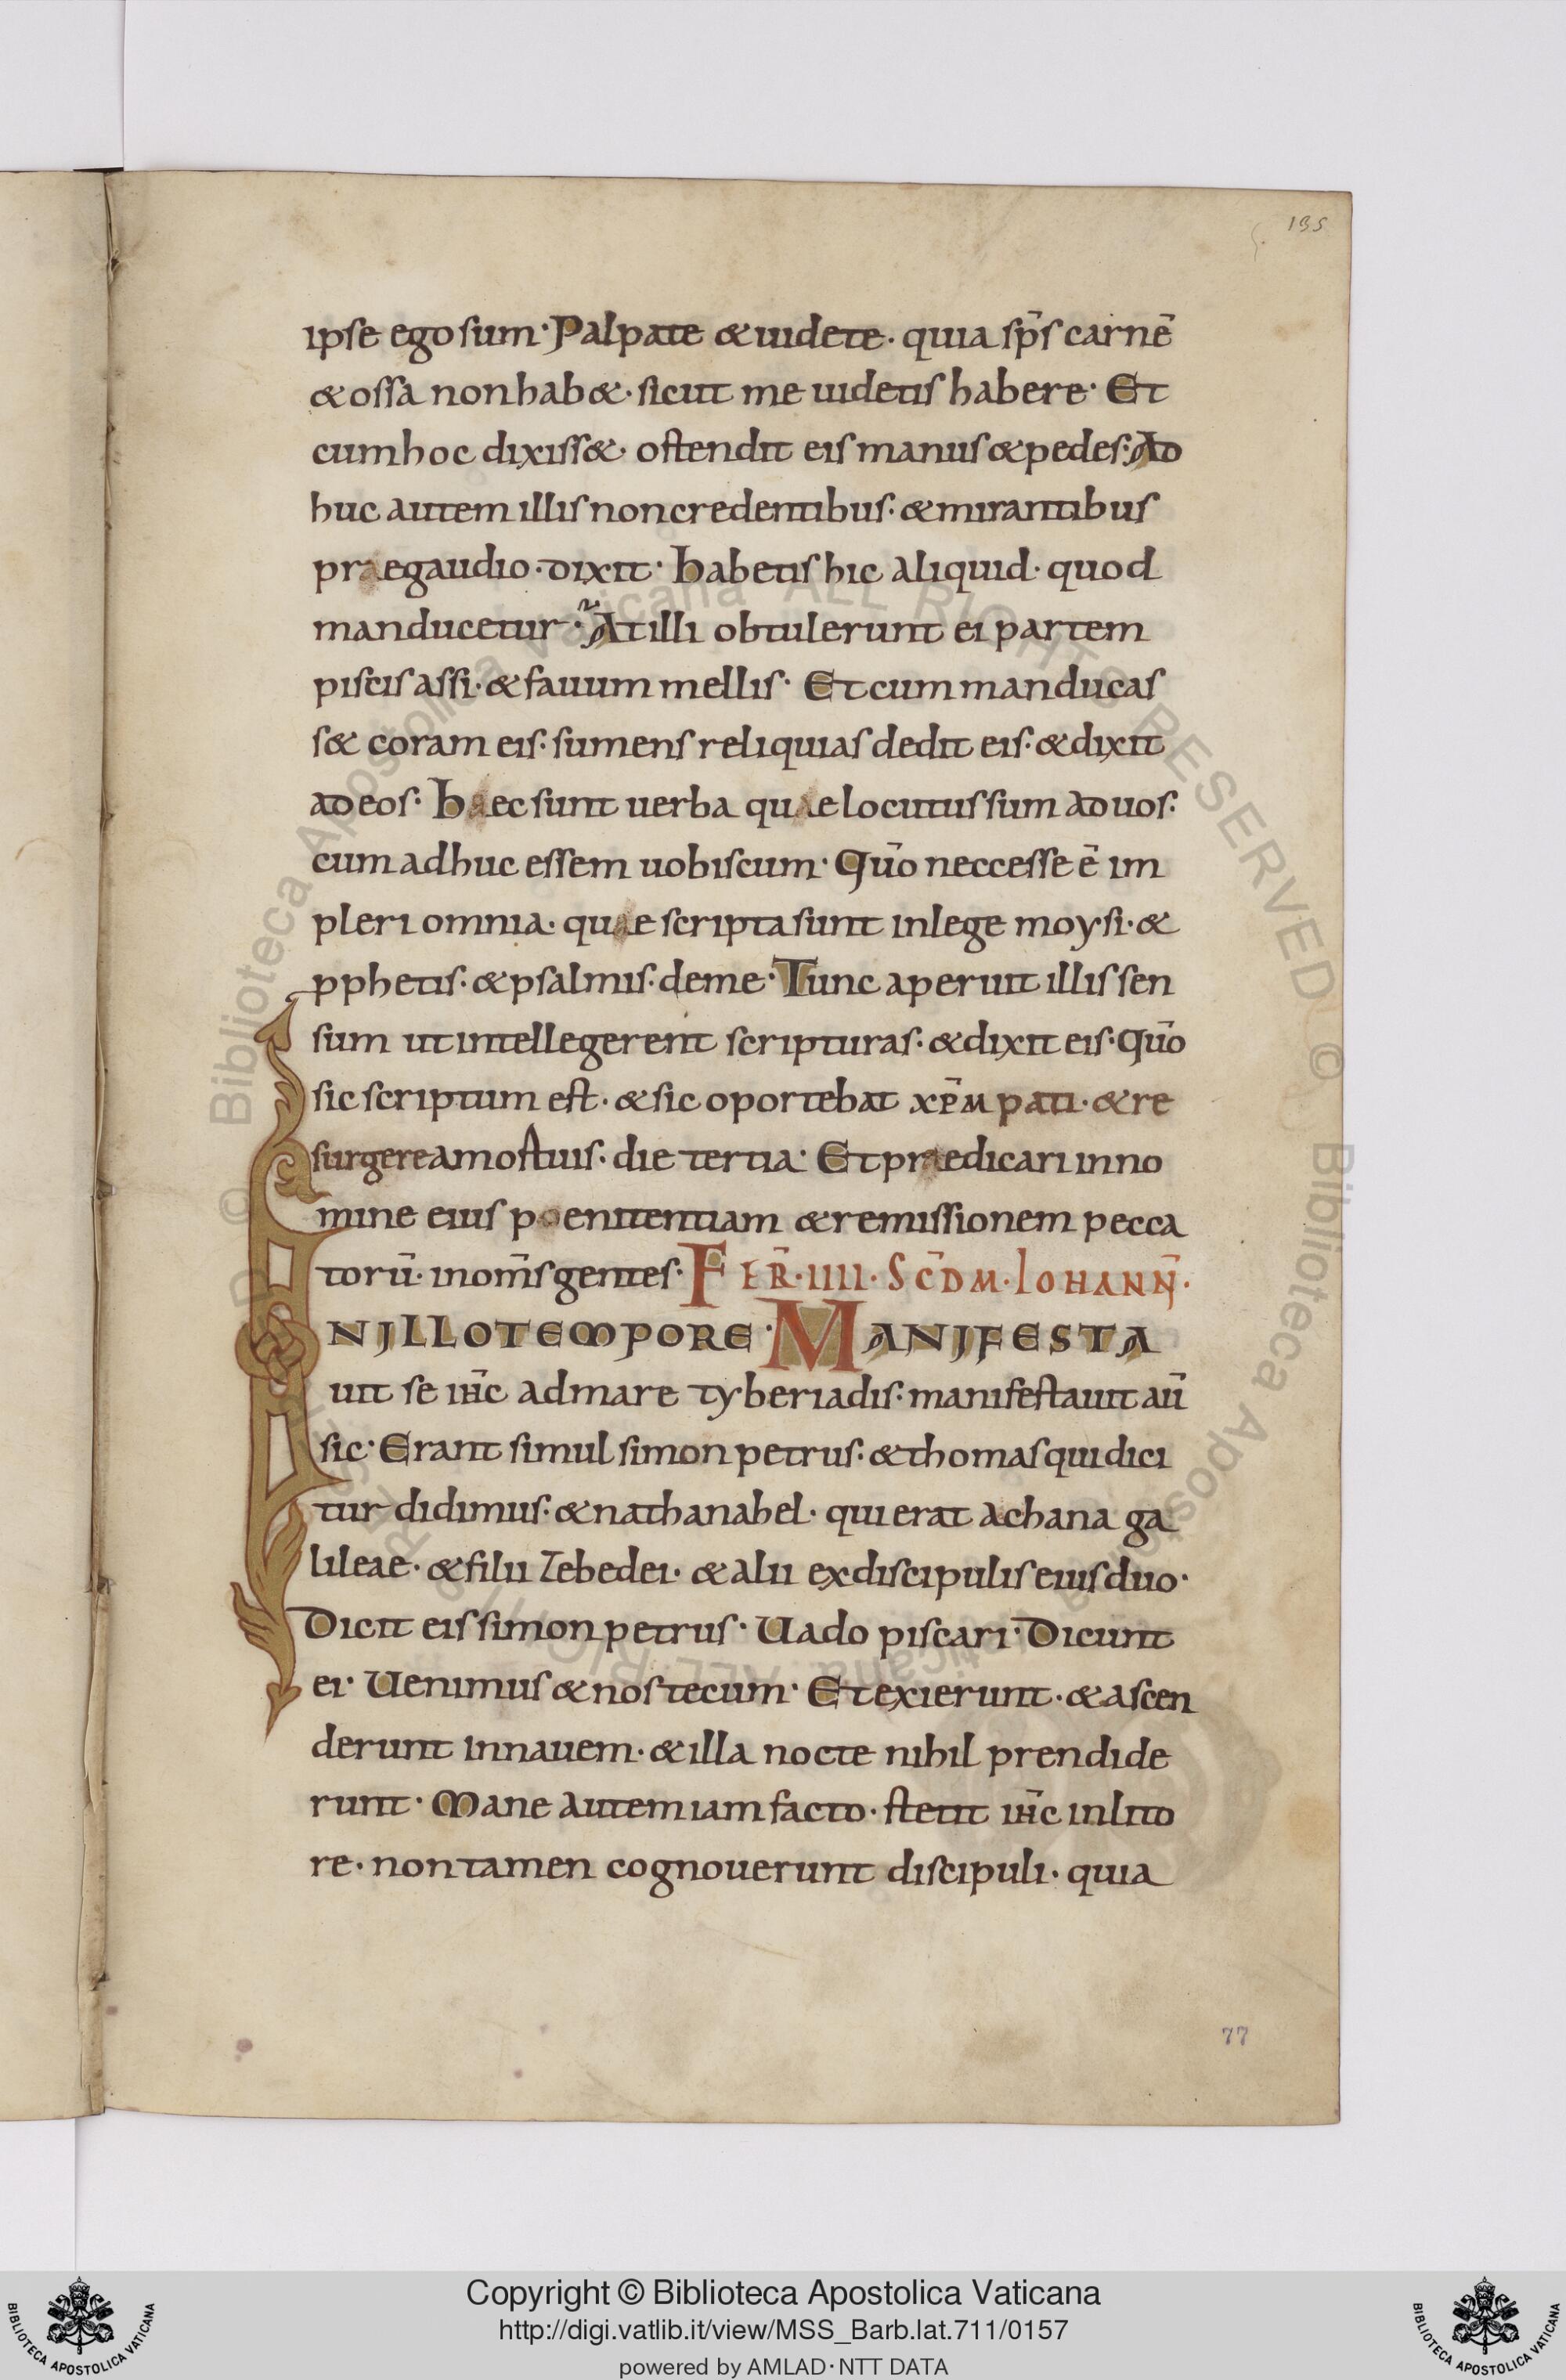 195
ipse ego sum· Palpate & uidete· quia sp̄s carnē
& ossa non hab&· sicut me uidetis habere· Et
cum hoc dixiss&· ostendit eis manus & pedes· Ad
huc autem illis non credentibus· & mirantibus
prae gaudio· dixit· habetis hic aliquid· quod
manducetur· At illi obtulerunt ei partem
piscis assi· & fauum mellis· Et cum manducas
s& coram eis· sumens reliquias dedit eis· & dixit
ad eos· haec sunt uerba quae locutus sum ad uos·
cum adhuc essem uobiscum· Qūo neccesse ē im
pleri omnia· quae scripta sunt in lege moysi· &
pphetis· & psalmis· de me· Tunc aperuit illis sen
sum ut intellegerent scripturas· & dixit eis· Qūo
sic scriptum est· & sic oportebat xp̄m pati· & re
surgere a mostuis· die tertia· Et praedicari in no
mine eius poenitentiam & remissionem pecca
torū· in om̄s gentes· FER̄· IIII· SC̄DM· IOHANN̄·
IN ILLO TEMPORE· MANIFESTA
uit se ih̄c ad mare tyberiadis· manifestauit aū
sic· Erant simul simon petrus· & thomas qui dici
tur didimus· & nathanahel· qui erat a chana ga
lileae· & filii Zebedei· & alii ex discipulis eius duo·
Dicit eis simon petrus· Uado piscari· Dicunt
ei· Uenimus & nos tecum· Et exierunt· & ascen
derunt in nauem· & illa nocte nihil prendide
runt· Mane autem iam facto· stetit ih̄c in lito
re· non tamen cognouerunt discipuli· quia
77
Copyright © Biblioteca Apostolica Vaticana
http://digi.vatlib.it/view/MSS_Barb.lat.711/0157
powered by AMLAD·NTT DATA
BIBLIOTECA APOSTOLICA VATICANA
BIBLIOTECA APOSTOLICA VATICANA